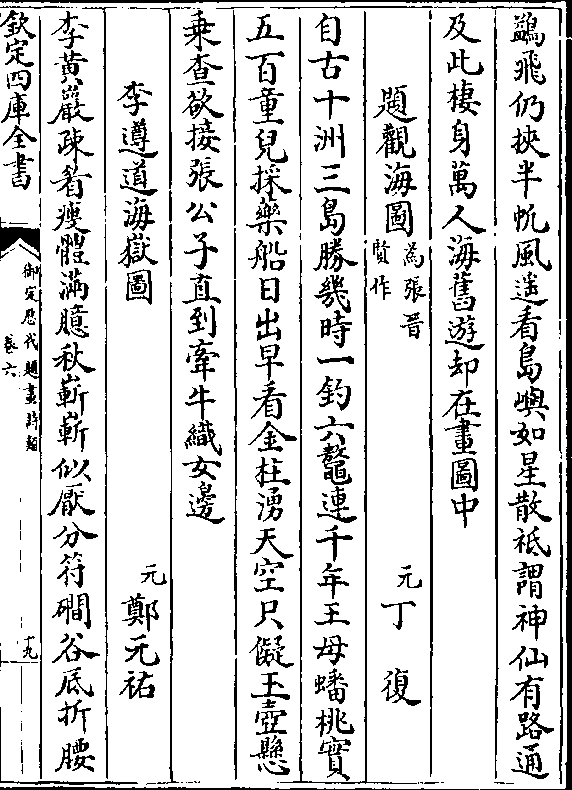 鷁飛仍挾半帆風遥看島嶼如星散祗謂神仙有路通
及此棲身萬人海舊遊却在畫圖中
題觀海圖 為張晉賢作 元 丁復
自古十洲三島勝幾時一釣六鼇連千年王母蟠桃實
五百童兒採藥船日出早看金柱湧天空只儗玉壺懸
乘查欲接張公子直到牽牛織女邊
李遵道海嶽圖 元 鄭元祐
李黄巖疎髯瘦體滿臆秋嶄嶄似厭分符磵谷底折腰
欽定四庫全書 御定歷代題畫詩類 卷六 十九